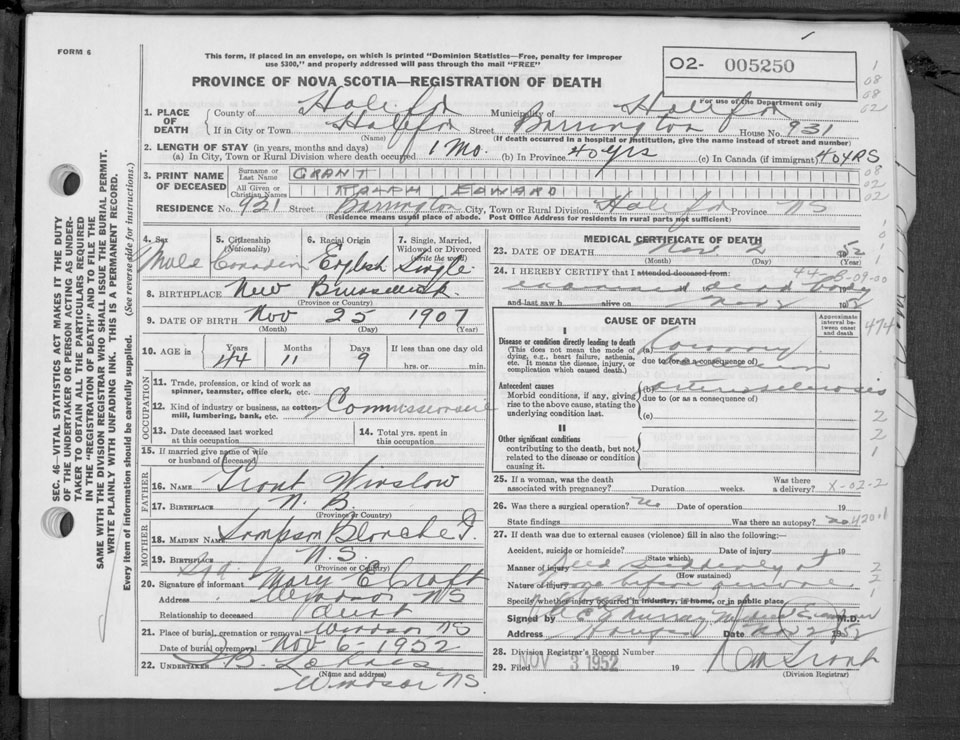 FORM 6
This form, if placed in an envelope, on which is printed "Dominion Statistics—Free, penalty for improper
use $300," and properly addressed will pass through the mail "FREE"
PROVINCE OF NOVA SCOTIA—REGISTRATION OF DEATH
O2- 005250
For use of the Department only
1. PLACE OF DEATH
County of Halifax Municipality of Halifax
If in City or Town Halifax Street Barrington House No. 931
(Name) (If death occurred in a hospital or institution, give the name instead of street and number)
2. LENGTH OF STAY (in years, months and days)
(a) In City, Town or Rural Division where death occurred 1 Mo. (b) In Province 40 yrs (c) In Canada (if immigrant) 40 YRS.
3. PRINT NAME OF DECEASED
Surname or Last Name GRANT
All Given or Christian Names RALPH EDWARD
RESIDENCE No. 931 Street Barrington City, Town or Rural Division Halifax Province NS
(Residence means usual place of abode. Post Office Address for residents in rural parts not sufficient)
4. Sex Male
5. Citizenship (Nationality) Canadian
6. Racial Origin English
7. Single, Married, Widowed or Divorced (write the word) Single
8. BIRTHPLACE New Brunswick
(Province or Country)
9. DATE OF BIRTH Nov 25 1907
(Month) (Day) (Year)
10. AGE in Years 44 Months 11 Days 9 If less than one day old
hrs. or min.
OCCUPATION
11. Trade, profession, or kind of work as
spinner, teamster, office clerk, etc.
12. Kind of industry or business, as cotton-
mill, lumbering, bank, etc. Commissionaire
13. Date deceased last worked at this occupation
14. Total yrs. spent in this occupation
15. If married give name of wife
or husband of deceased
FATHER
16. NAME Grant Winslow
17. BIRTHPLACE N. B.
(Province or Country)
MOTHER
18. MAIDEN NAME Sampson Blanche
19. BIRTHPLACE N.S.
(Province or Country)
20. Signature of informant Mary E Craft
Address Windsor NS
Relationship to deceased Aunt
21. Place of burial, cremation or removal Windsor NS
Date of burial or removal Nov 6 1952
22. UNDERTAKER
(Name and address)
Windsor NS
MEDICAL CERTIFICATE OF DEATH
23. DATE OF DEATH Nov. 2 1952
(Month) (Day) (Year)
24. I HEREBY CERTIFY that I attended deceased from:
examined dead body
and last saw h alive on Nov 2 1952
CAUSE OF DEATH
Approximate interval between onset and death
I
Disease or condition directly leading to death
(This does not mean the mode of
dying, e.g., heart failure, asthenia,
etc. It means the disease, injury, or
complication which caused death.)
(a) Coronary
due to (or as a consequence of)
Antecedent causes
Morbid conditions, if any, giving
rise to the above cause, stating the
underlying condition last.
(b) arteriosclerosis
due to (or as a consequence of)
(c)
II
Other significant conditions
contributing to the death, but not
related to the disease or condition
causing it.
25. If a woman, was the death
associated with pregnancy? Duration weeks. Was there a delivery? X-02-2
26. Was there a surgical operation? no Date of operation 19
State findings Was there an autopsy? no 420.1
27. If death was due to external causes (violence) fill in also the following:—
Accident, suicide or homicide? Date of injury 19
(State which)
Manner of injury died suddenly at
(How sustained)
Nature of injury home before arrival
Specify whether injury occurred in industry, in home, or in public place
Signed by Medical Examiner M.D.
Address Halifax Date Nov 2 1952
28. Division Registrar's Record Number
29. Filed NOV 3 1952 19
(Division Registrar)
SEC. 46—VITAL STATISTICS ACT MAKES IT THE DUTY
OF THE UNDERTAKER OR PERSON ACTING AS UNDER-
TAKER TO OBTAIN ALL THE PARTICULARS REQUIRED
IN THE "REGISTRATION OF DEATH" AND TO FILE THE
SAME WITH THE DIVISION REGISTRAR WHO SHALL ISSUE THE BURIAL PERMIT.
WRITE PLAINLY WITH UNFADING INK. THIS IS A PERMANENT RECORD.
Every item of information should be carefully supplied. (See reverse side for instructions.)